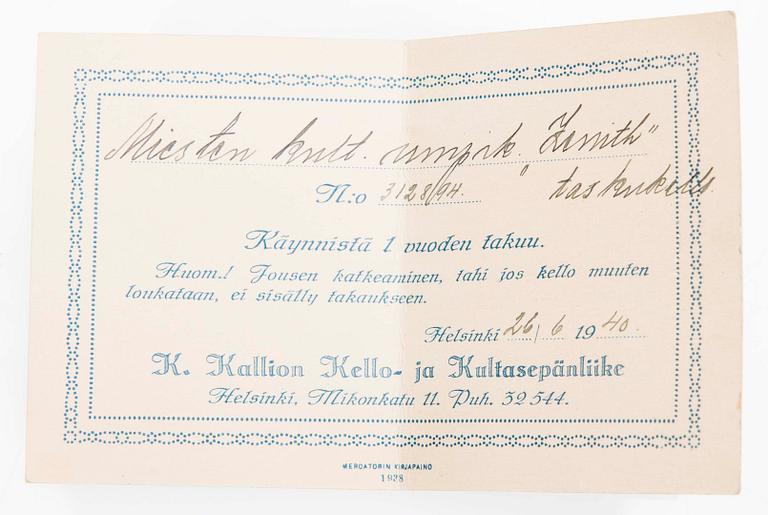 Miesten kult. umpik. "Zenith"
N:o 3128194. taskukello.
Käynnistä 1 vuoden takuu.
Huom.! Jousen katkeaminen, tahi jos kello muuten
loukataan, ei sisälly takaukseen.
Helsinki 26/6 1940.
K. Kallion Kello- ja Kultasepänliike
Helsinki, Mikonkatu 11. Puh. 32 544.
MERCATORIN KIRJAPAINO
1938